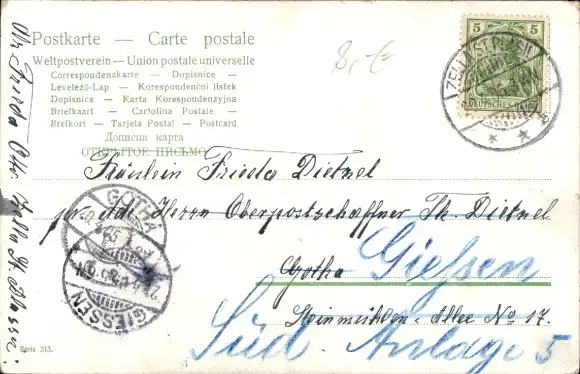 Postkarte — Carte postale
Weltpostverein — Union postale universelle
Correspondenzkarte — Dopisnice —
Levelező-Lap — Korespondenční listek
Dopisnica — Karta Korespondenzyjna
Briefkaart — Cartolina Postale —
Brefkort — Tarjeta Postal — Postcard
Дописна карта
ОТКРЫТОЕ ПИСЬМО
8,-€
5 5
DEUTSCHES REICH
ZELLA (ST. BLASII)
Fräulein Frieda Dietzel
pr. Adr. Herrn Oberpostschaffner Th. Dietzel
Gotha
Giessen
Steinmühlen-Allee No 17.
Süd-Anlage 5
GOTHA
GIESSEN
Frieda Otto Zella St. Blasii.
Serie 313.